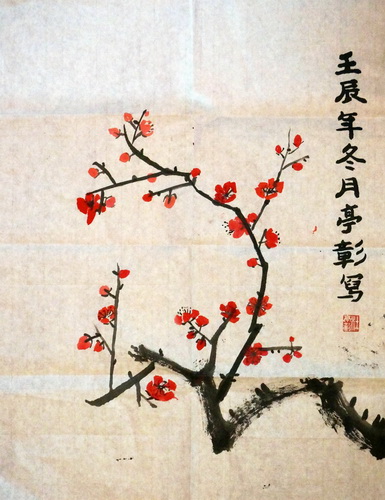 壬辰年冬月亭彰寫